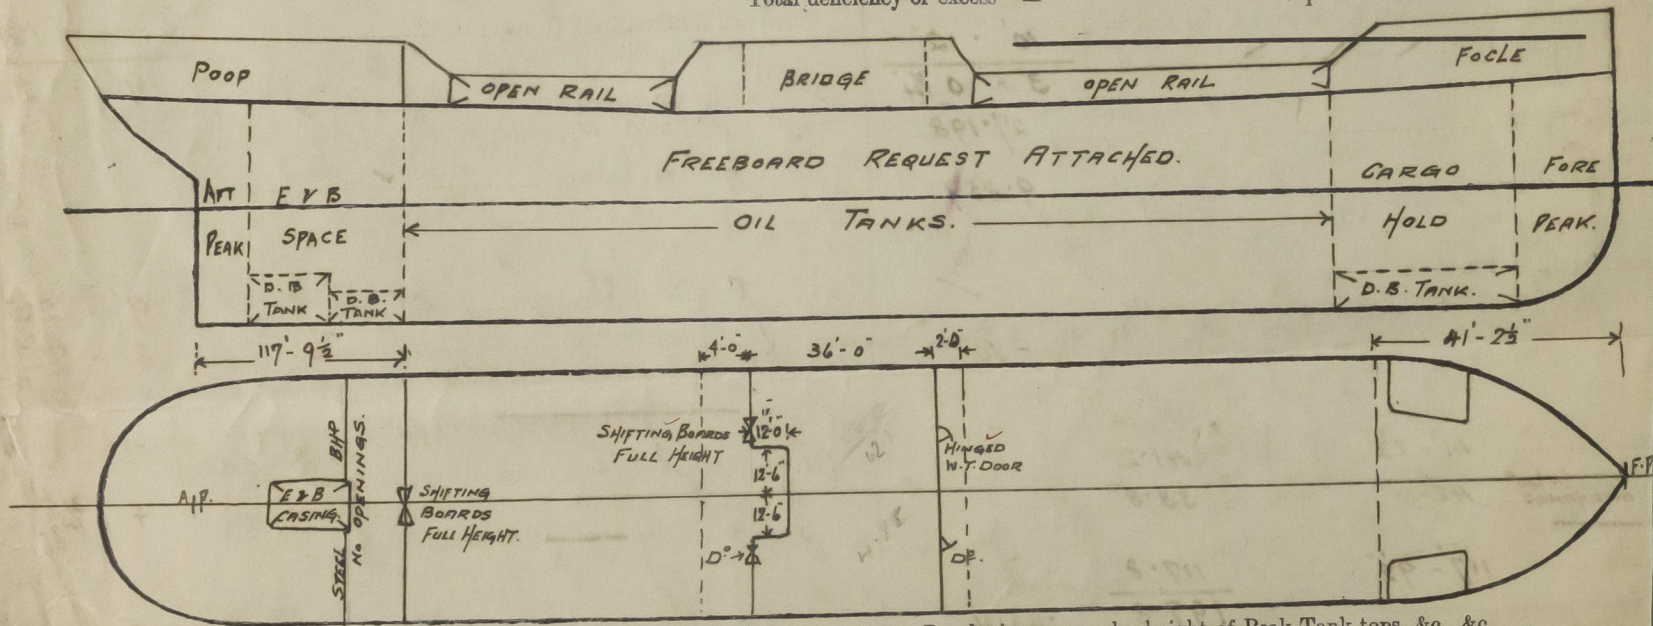 Total deficiency or excess =
POOP
OPEN RAIL
BRIDGE
OPEN RAIL
FOCLE
FREEBOARD REQUEST ATTACHED.
AFT
PEAK
E & B
SPACE
OIL TANKS.
CARGO
HOLD
FORE
PEAK.
D.B
TANK
D.B.
TANK
D.B. TANK.
117'-9½"
4'-0"
36'-0"
2'-0"
41'-2½"
A.P.
E & B
CASING.
STEEL BHP
NO OPENINGS.
SHIFTING
BOARDS
FULL HEIGHT.
SHIFTING BOARDS
FULL HEIGHT
12'-0"
12'-6"
12'-6"
Dº
HINGED
W.T. DOOR
Dº
F.P.
height of Peak Tank tops, &c., &c.